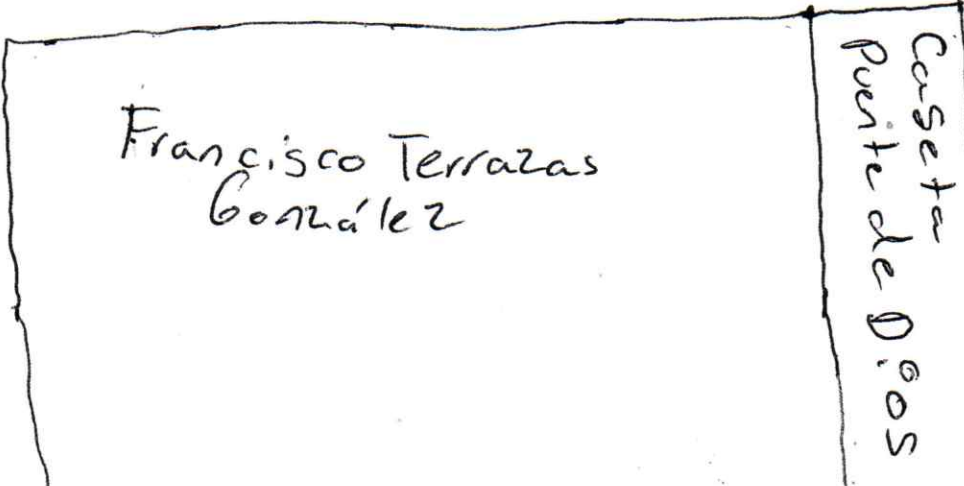 Francisco Terrazas
González
Caseta
Puente de Dios